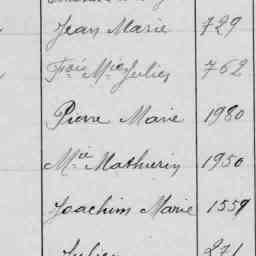 Jean Marie 729
Frois Mie Julien 762
Pierre Marie 1980
Mie Mathurin 1950
Joachim Marie 1559
Julien 271